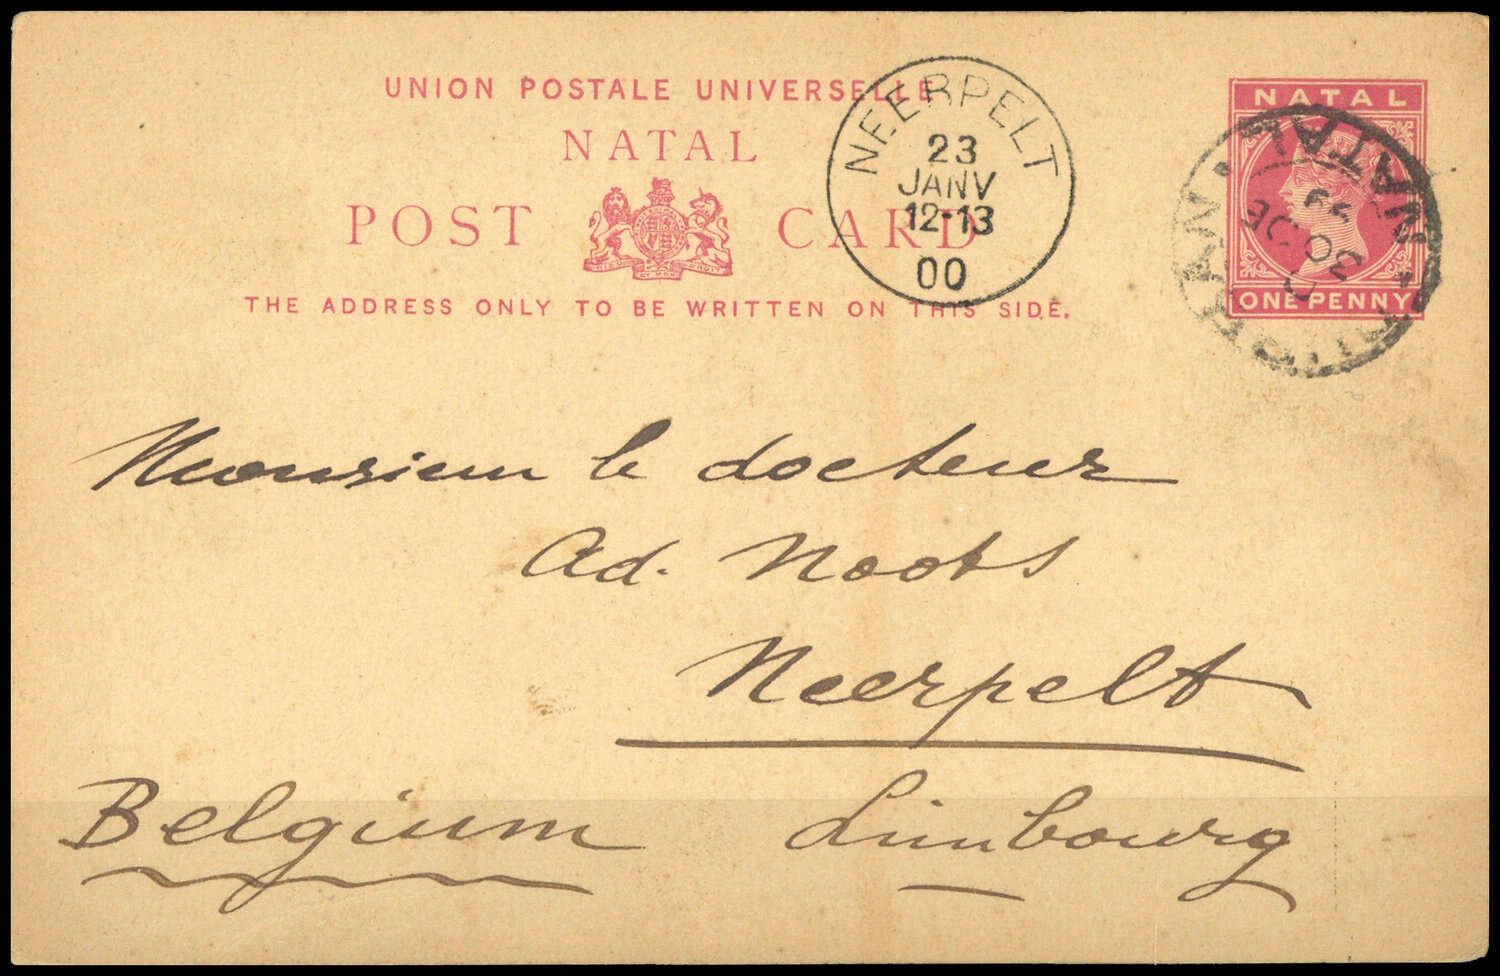 UNION POSTALE UNIVERSELLE
NATAL
POST CARD
THE ADDRESS ONLY TO BE WRITTEN ON THIS SIDE.
NEERPELT
23
JANV
12-13
00
NATAL
ONE PENNY
NATAL
30
99
Monsieur le docteur
Ad. Noots
Neerpelt
Belgium Limbourg